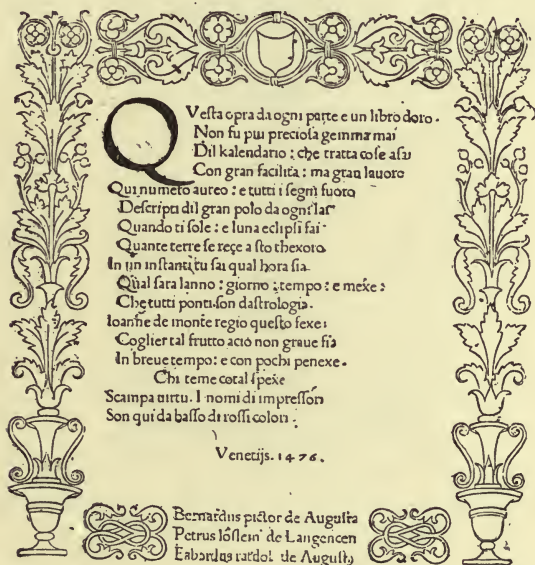 QVesta opra da ogni parte e un libro doro.
Non fu piu preciosa gemma mai
Dil kalendario: che tratta cose asai
Con gran facilita: ma gran lauoro
Qui numero aureo: e tutti i segni fuoro
Descripti dil gran polo da ogni lai
Quando ti sole: e luna eclipsi fai
Quante terre se rece a sto thexoro
In un instanti tu sai qual hora sia
Qual sara lanno: giorno: tempo: e mexe:
Che tutti ponti son dastrologia.
Ioanne de monte regio questo fexe:
Coglier tal frutto acio non graue sia
In breue tempo: e con pochi penexe.
Chi teme cotal spexe
Scampa uirtu. I nomi di impressori
Son qui da basso di rossi colori.
Venetijs. 1476.
Bernardus pictor de Augusta
Petrus löslein de Langencen
Erhardus ratdolt de Augusta